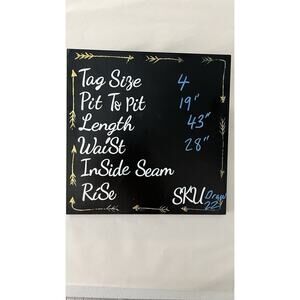 Tag Size 4
Pit To Pit 19"
Length 43"
WaiSt 28"
InSide Seam
RiSe SKU Draw
22